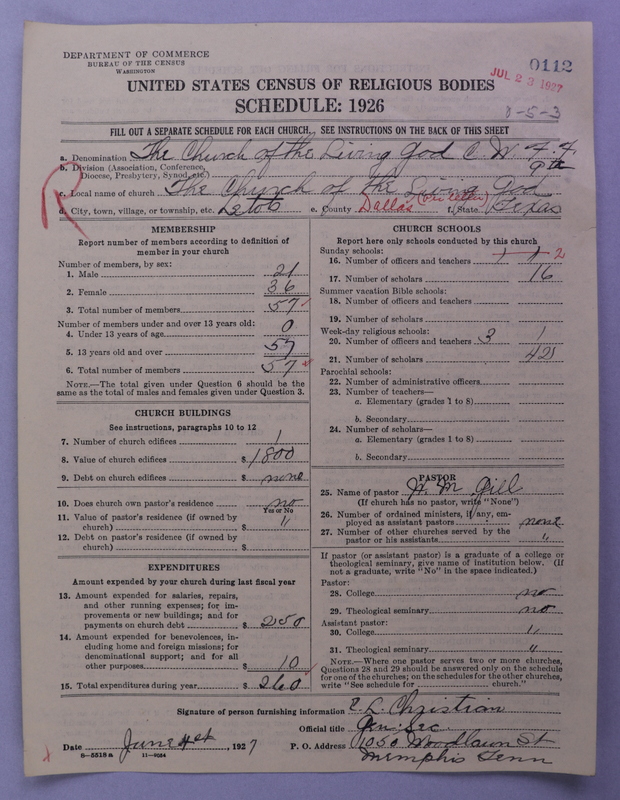 DEPARTMENT OF COMMERCE
BUREAU OF THE CENSUS
WASHINGTON
0112
JUL 23 1927
UNITED STATES CENSUS OF RELIGIOUS BODIES
SCHEDULE: 1926
8-5-3
FILL OUT A SEPARATE SCHEDULE FOR EACH CHURCH. SEE INSTRUCTIONS ON THE BACK OF THIS SHEET
a. Denomination The Church of the Living God C. W. F. F.
b. Division (Association, Conference, Diocese, Presbytery, Synod, etc.)
c. Local name of church The Church of the Living God
R
d. City, town, village, or township, etc. e. County Dallas f. State Texas
MEMBERSHIP
Report number of members according to definition of
member in your church
Number of members, by sex:
1. Male 21
2. Female 36
3. Total number of members 57
Number of members under and over 13 years old:
4. Under 13 years of age 0
5. 13 years old and over 57
6. Total number of members 57
NOTE.—The total given under Question 6 should be the
same as the total of males and females given under Question 3.
CHURCH BUILDINGS
See instructions, paragraphs 10 to 12
7. Number of church edifices 1
8. Value of church edifices $ 1800
9. Debt on church edifices $ none
10. Does church own pastor's residence no
Yes or No
11. Value of pastor's residence (if owned by
church) $ "
12. Debt on pastor's residence (if owned by
church) $
EXPENDITURES
Amount expended by your church during last fiscal year
13. Amount expended for salaries, repairs,
and other running expenses; for im-
provements or new buildings; and for
payments on church debt $ 250
14. Amount expended for benevolences, in-
cluding home and foreign missions; for
denominational support; and for all
other purposes $ 10
15. Total expenditures during year $ 260
CHURCH SCHOOLS
Report here only schools conducted by this church
Sunday schools:
16. Number of officers and teachers 1 1 2
17. Number of scholars 16
Summer vacation Bible schools:
18. Number of officers and teachers
19. Number of scholars
Week-day religious schools:
20. Number of officers and teachers 3 1
21. Number of scholars
Parochial schools:
22. Number of administrative officers
23. Number of teachers—
a. Elementary (grades 1 to 8)
b. Secondary
24. Number of scholars—
a. Elementary (grades 1 to 8)
b. Secondary
PASTOR
25. Name of pastor W. M. Gill
(If church has no pastor, write "None")
26. Number of ordained ministers, if any, em-
ployed as assistant pastors none
27. Number of other churches served by the
pastor or his assistants "
If pastor (or assistant pastor) is a graduate of a college or
theological seminary, give name of institution below. (If
not a graduate, write "No" in the space indicated.)
Pastor:
28. College no
29. Theological seminary no
Assistant pastor:
30. College "
31. Theological seminary "
NOTE.—Where one pastor serves two or more churches,
Questions 28 and 29 should be answered only on the schedule
for one of the churches; on the schedules for the other churches,
write "See schedule for church."
Signature of person furnishing information E. L. Christian
Official title Gen. Sec
Date June 1927 P. O. Address 1050 Woodlawn St
8-5518a 11-9034
Memphis Tenn